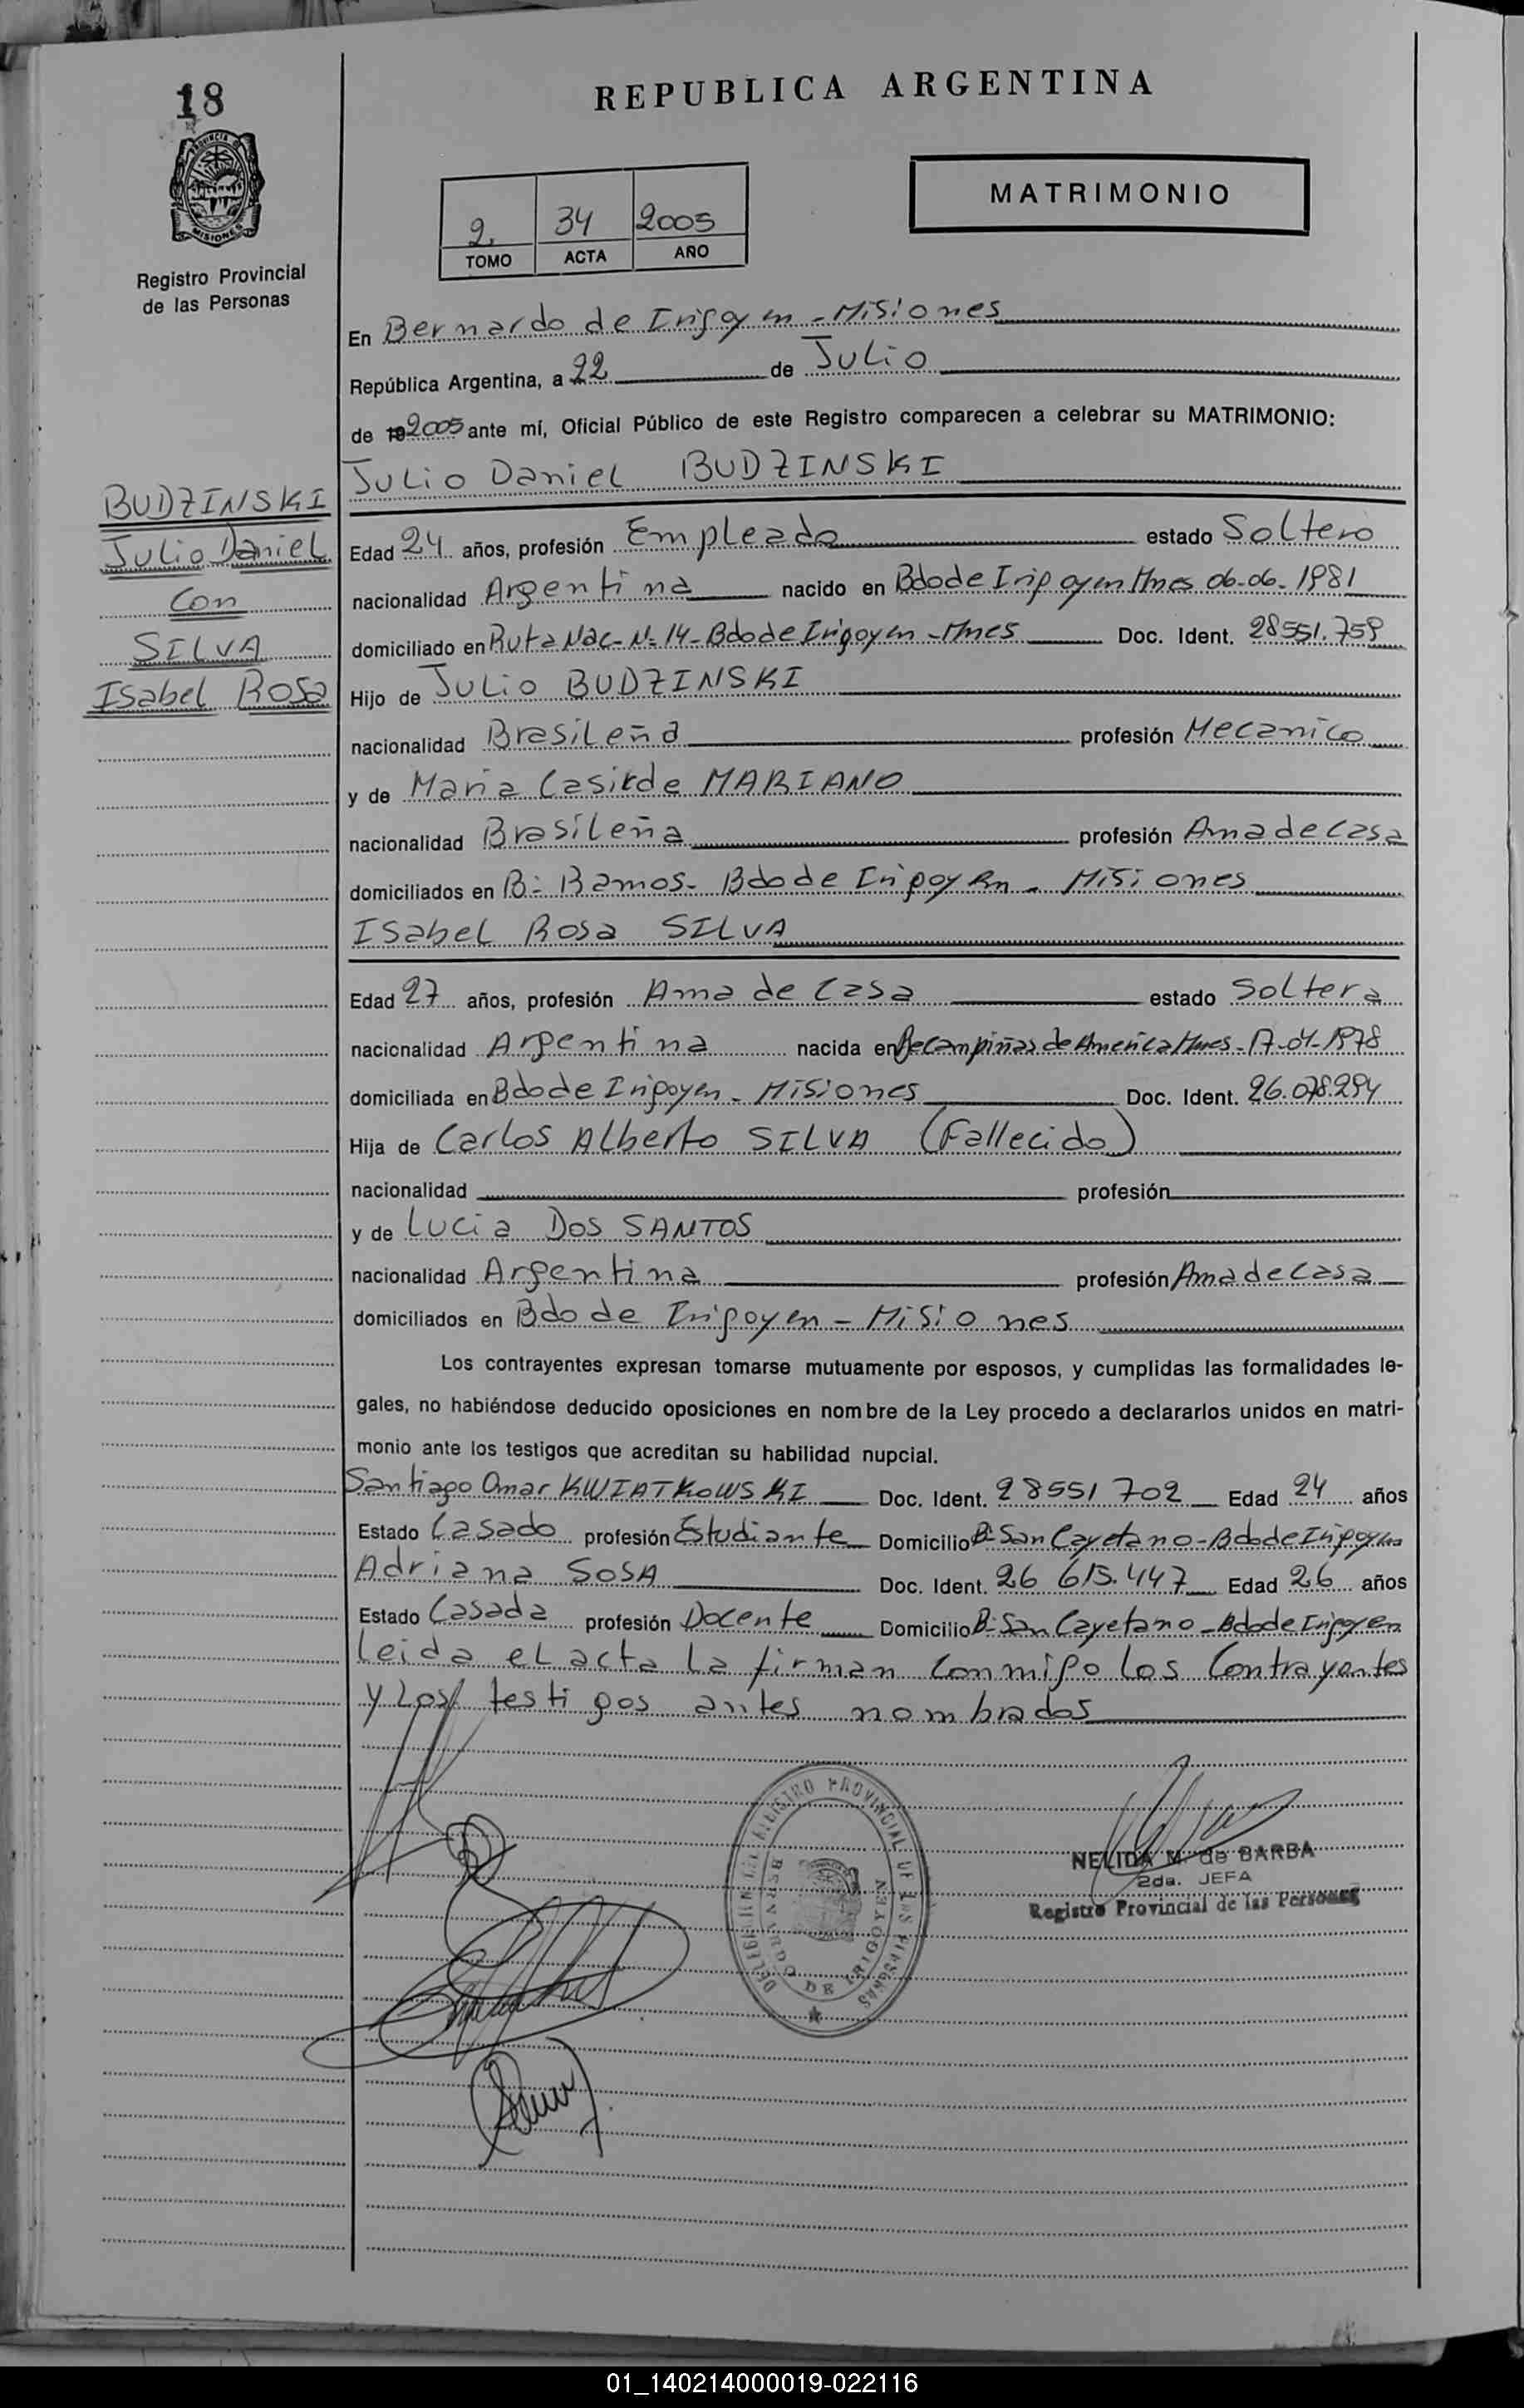 18
REPUBLICA ARGENTINA
PROVINCIA DE
MISIONES
MATRIMONIO
2. 34 2005
TOMO ACTA AÑO
Registro Provincial
de las Personas
En Bernardo de Irigoyen - Misiones
República Argentina, a 22 de Julio
de 19 2005 ante mí, Oficial Público de este Registro comparecen a celebrar su MATRIMONIO:
Julio Daniel BUDZINSKI
BUDZINSKI
Julio Daniel
Con
SILVA
Isabel Rosa
Edad 24 años, profesión Empleado estado Soltero
nacionalidad Argentina nacido en Bdo de Irigoyen Mnes 06-06-1981
domiciliado en Ruta Nac-Nº 14-Bdo de Irigoyen-Mnes Doc. Ident. 28551.759
Hijo de Julio BUDZINSKI
nacionalidad Brasileña profesión Mecanico
y de Maria MARIANO
nacionalidad Brasileña profesión Ama de Casa
domiciliados en Bº Ramos- Bdo de Irigoyen - Misiones
Isabel Rosa SILVA
Edad 27 años, profesión Ama de Casa estado Soltera
nacionalidad Argentina nacida en de America Mnes-17-01-1978
domiciliada en Bdo de Irigoyen - Misiones Doc. Ident. 26.078.294
Hija de Carlos Alberto SILVA (Fallecido)
nacionalidad profesión
y de Lucia DOS SANTOS
nacionalidad Argentina profesión Ama de Casa
domiciliados en Bdo de Irigoyen - Misiones
Los contrayentes expresan tomarse mutuamente por esposos, y cumplidas las formalidades le-
gales, no habiéndose deducido oposiciones en nombre de la Ley procedo a declararlos unidos en matri-
monio ante los testigos que acreditan su habilidad nupcial.
Santiago Omar KWIATKOWSKI Doc. Ident. 28551702 Edad 24 años
Estado Casado profesión Estudiante Domicilio Bº San Cayetano-Bdo de Irigoyen
Adriana SOSA Doc. Ident. 26 615.447 Edad 26 años
Estado Casada profesión Docente Domicilio Bº San Cayetano-Bdo de Irigoyen
Leida el acta la firman conmigo los Contrayentes
y los testigos antes nombrados
DELEGACION DEL REGISTRO PROVINCIAL DE LAS PERSONAS
BERNARDO DE IRIGOYEN
NELIDA M. de BARBA
2da. JEFA
Registro Provincial de las Personas
01_140214000019-022116